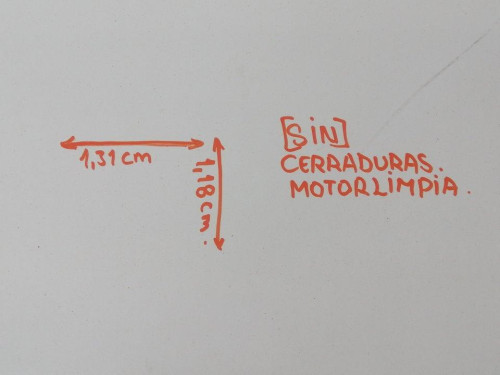 1,31 cm
1,18 cm.
[SIN]
CERRADURAS.
MOTORLIMPIA.